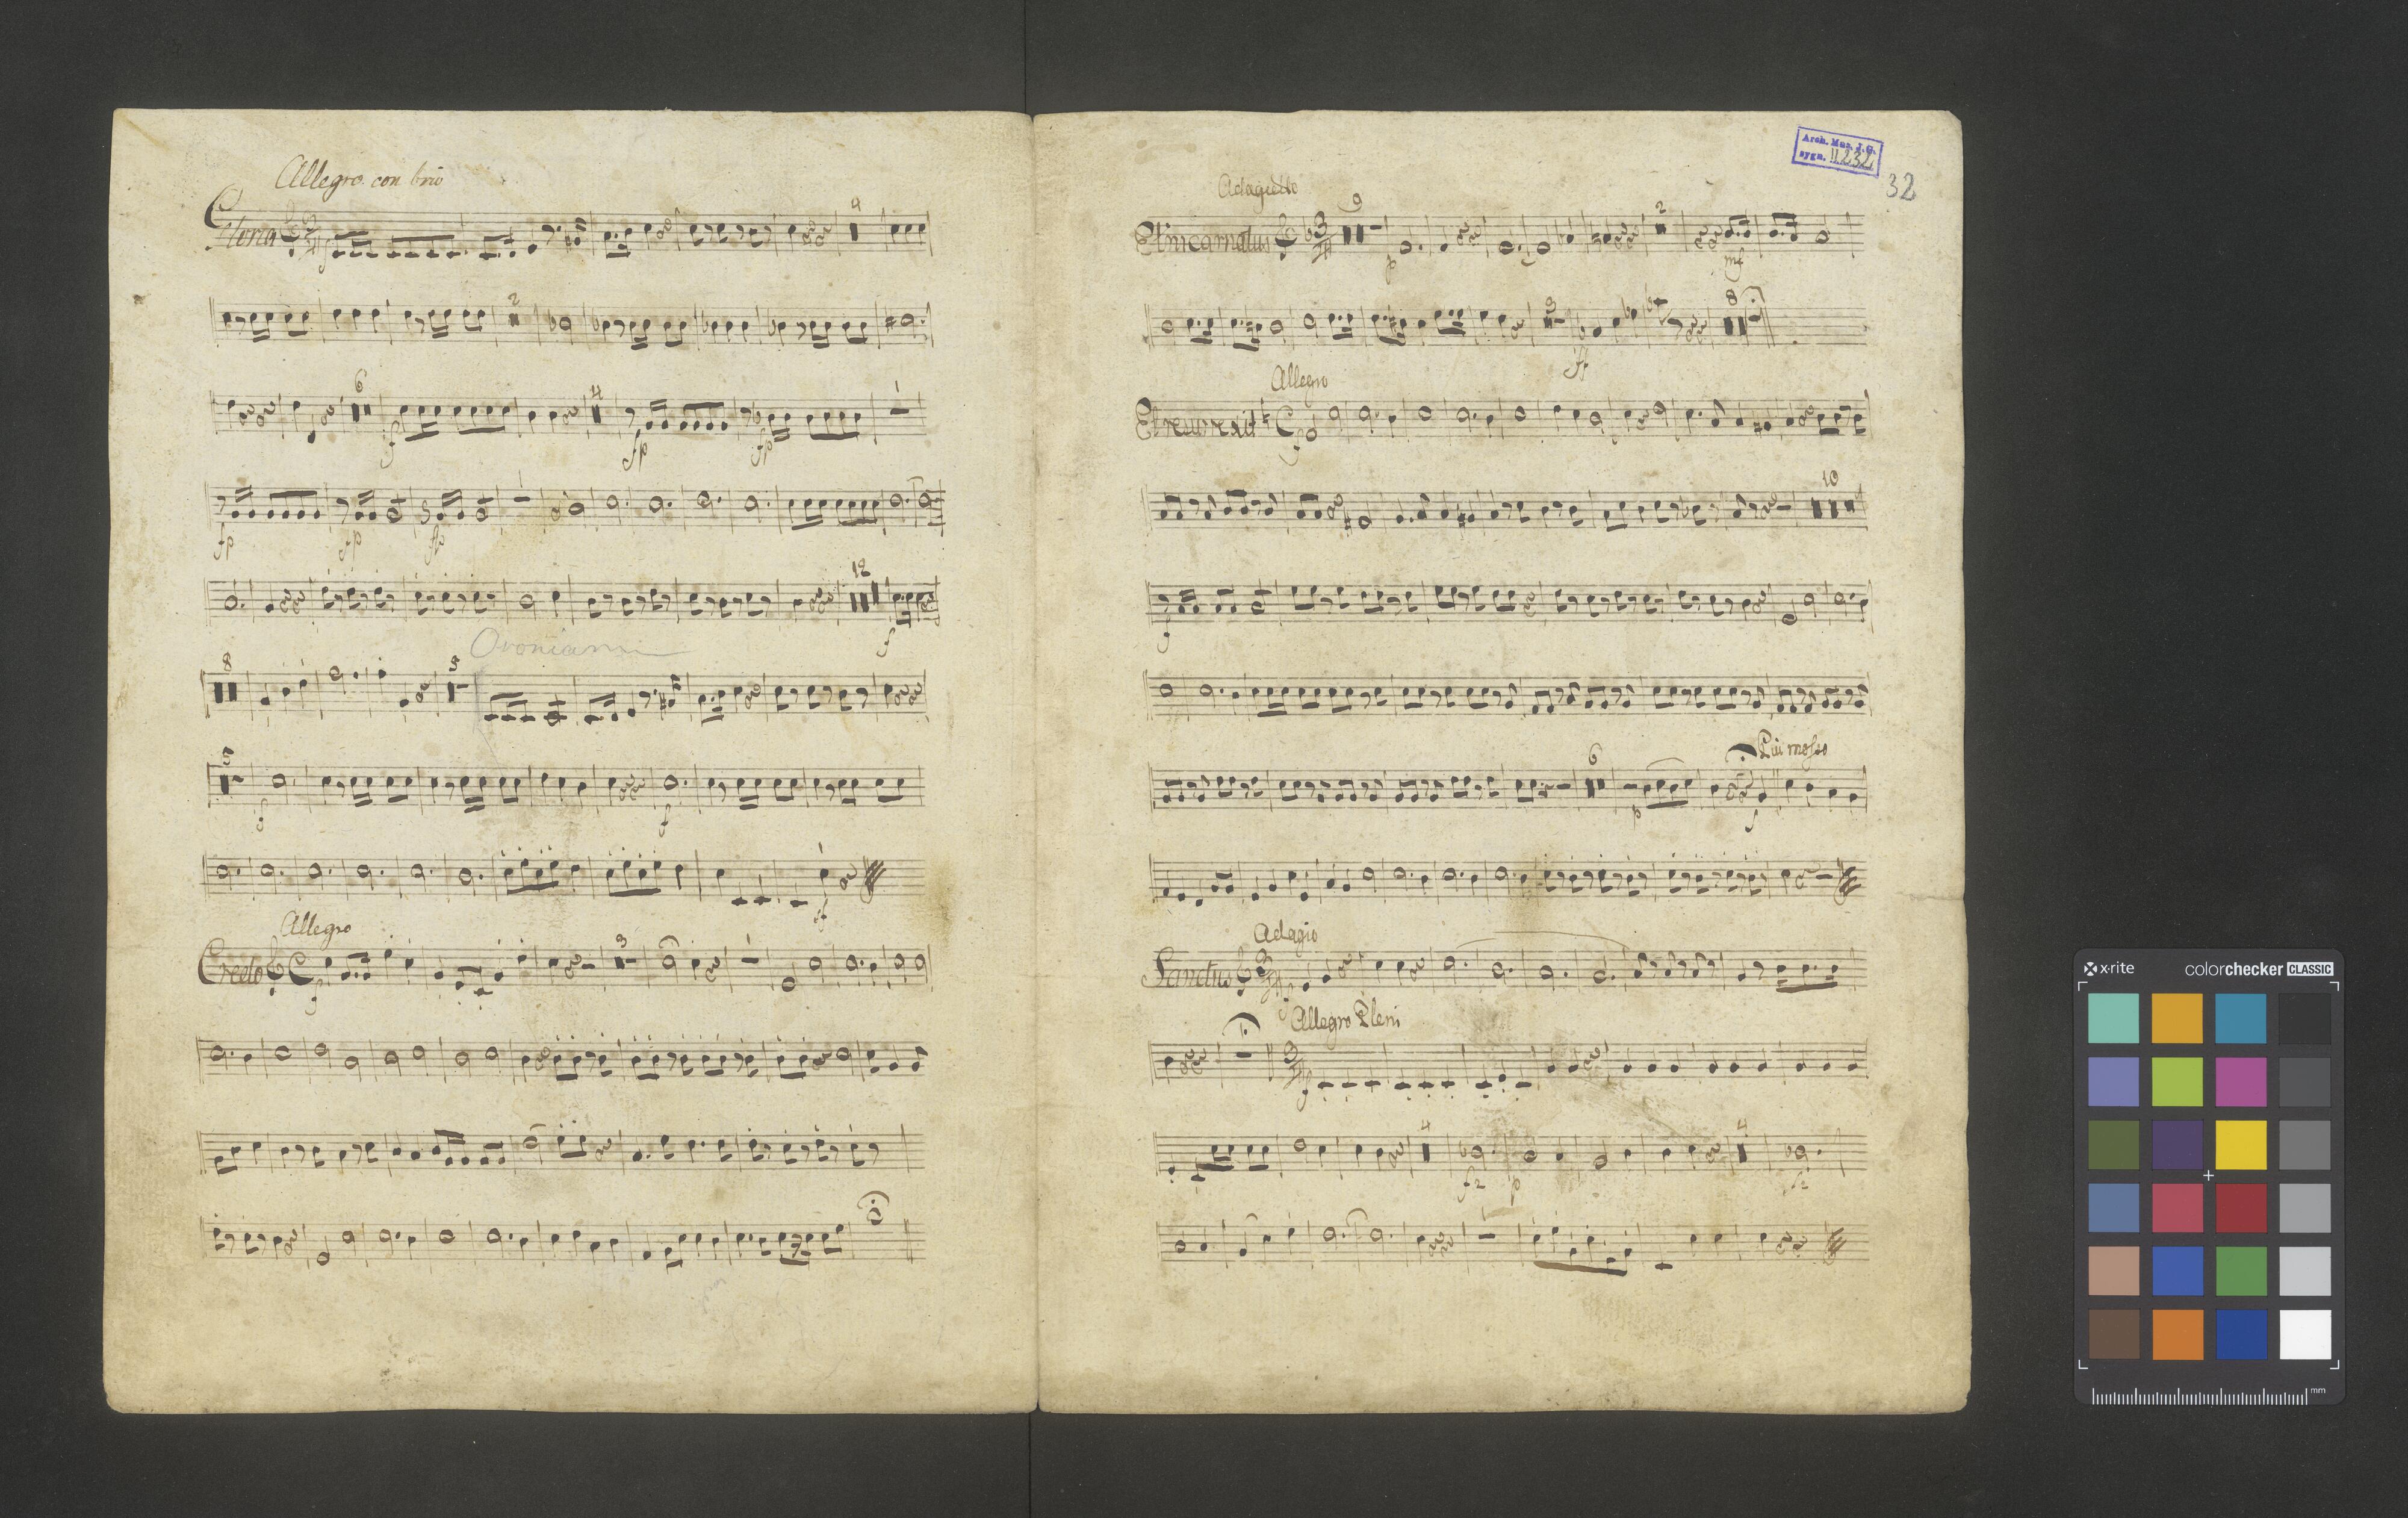 Allegro con brio
Gloria
f
4
2
6
f
4
fp
fp
1
fp
fp
fp
1
12
f
8
5
5
f
f
ff
Allegro
Credo C
f
3
1
Arch. Mus. J.G.
sygn. II 232
32
Adagietto
Et incarnatus 3/4
9
p
2
mf
3
ff
8
Allegro
Et resurrexit C
f
10
f
6
Più mosso
p
f
Adagio
Sanctus 3/4
f
Allegro Pleni
3/4
f
4
fz
p
4
fz
1
x-rite
colorchecker CLASSIC
mm